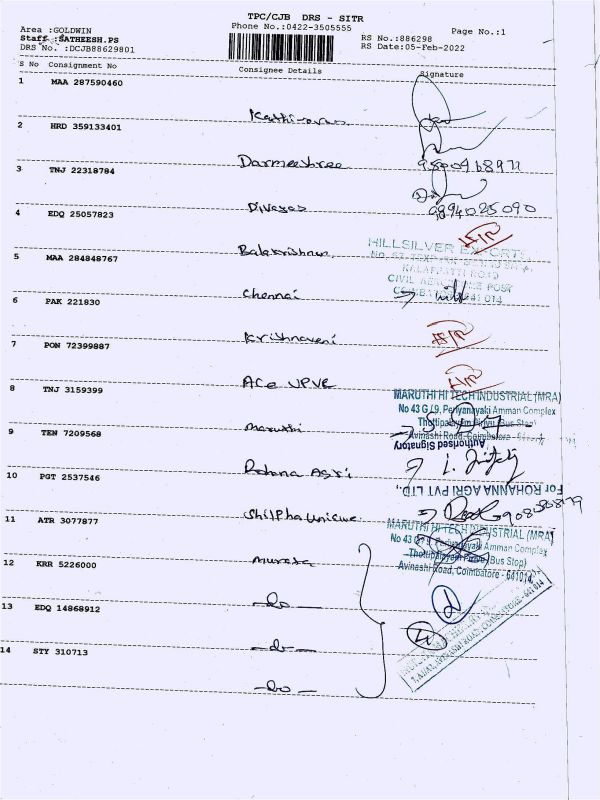 TPC/CJB DRS - SITR
Phone No.:0422-3505555
Area :GOLDWIN
Staff :SATHEESH.PS
DRS No. :DCJB88629801
RS No.:886298
RS Date:05-Feb-2022
Page No.:1
S No Consignment No Consignee Details Signature
1 MAA 287590460
2 HRD 359133401 Darmeeshree
9890468971
3 TNJ 22318784 Divagas
9894025090
4 EDQ 25057823 Balakrishnan
HILLSILVER EXPORTS
KALAPATTI ROAD
5 MAA 284848767 Chennai
6 PAK 221830 Krishnaveni
7 PON 72399887 ACe UPVC
8 TNJ 3159399 Maruthi
MARUTHI HI TECH INDUSTRIAL (MRA)
No 43 G /9, Periyanayaki Amman Complex
Thottipalayam Pirivu (Bus Stop)
Avinashi Road, Coimbatore -
Authorised Signatory
9 TEN 7209568 Rohana Agri
10 PGT 2537546 Shilpha Unique
For ROHANNA AGRI PVT LTD.,
11 ATR 3077877 Murata
MARUTHI HI TECH INDUSTRIAL (MRA)
No 43 G / 9, Periyanayaki Amman Complex
Thottipalayam Pirivu (Bus Stop)
Avinashi Road, Coimbatore - 641014
12 KRR 5226000 -do-
13 EDQ 14868912 -do-
14 STY 310713 -do-